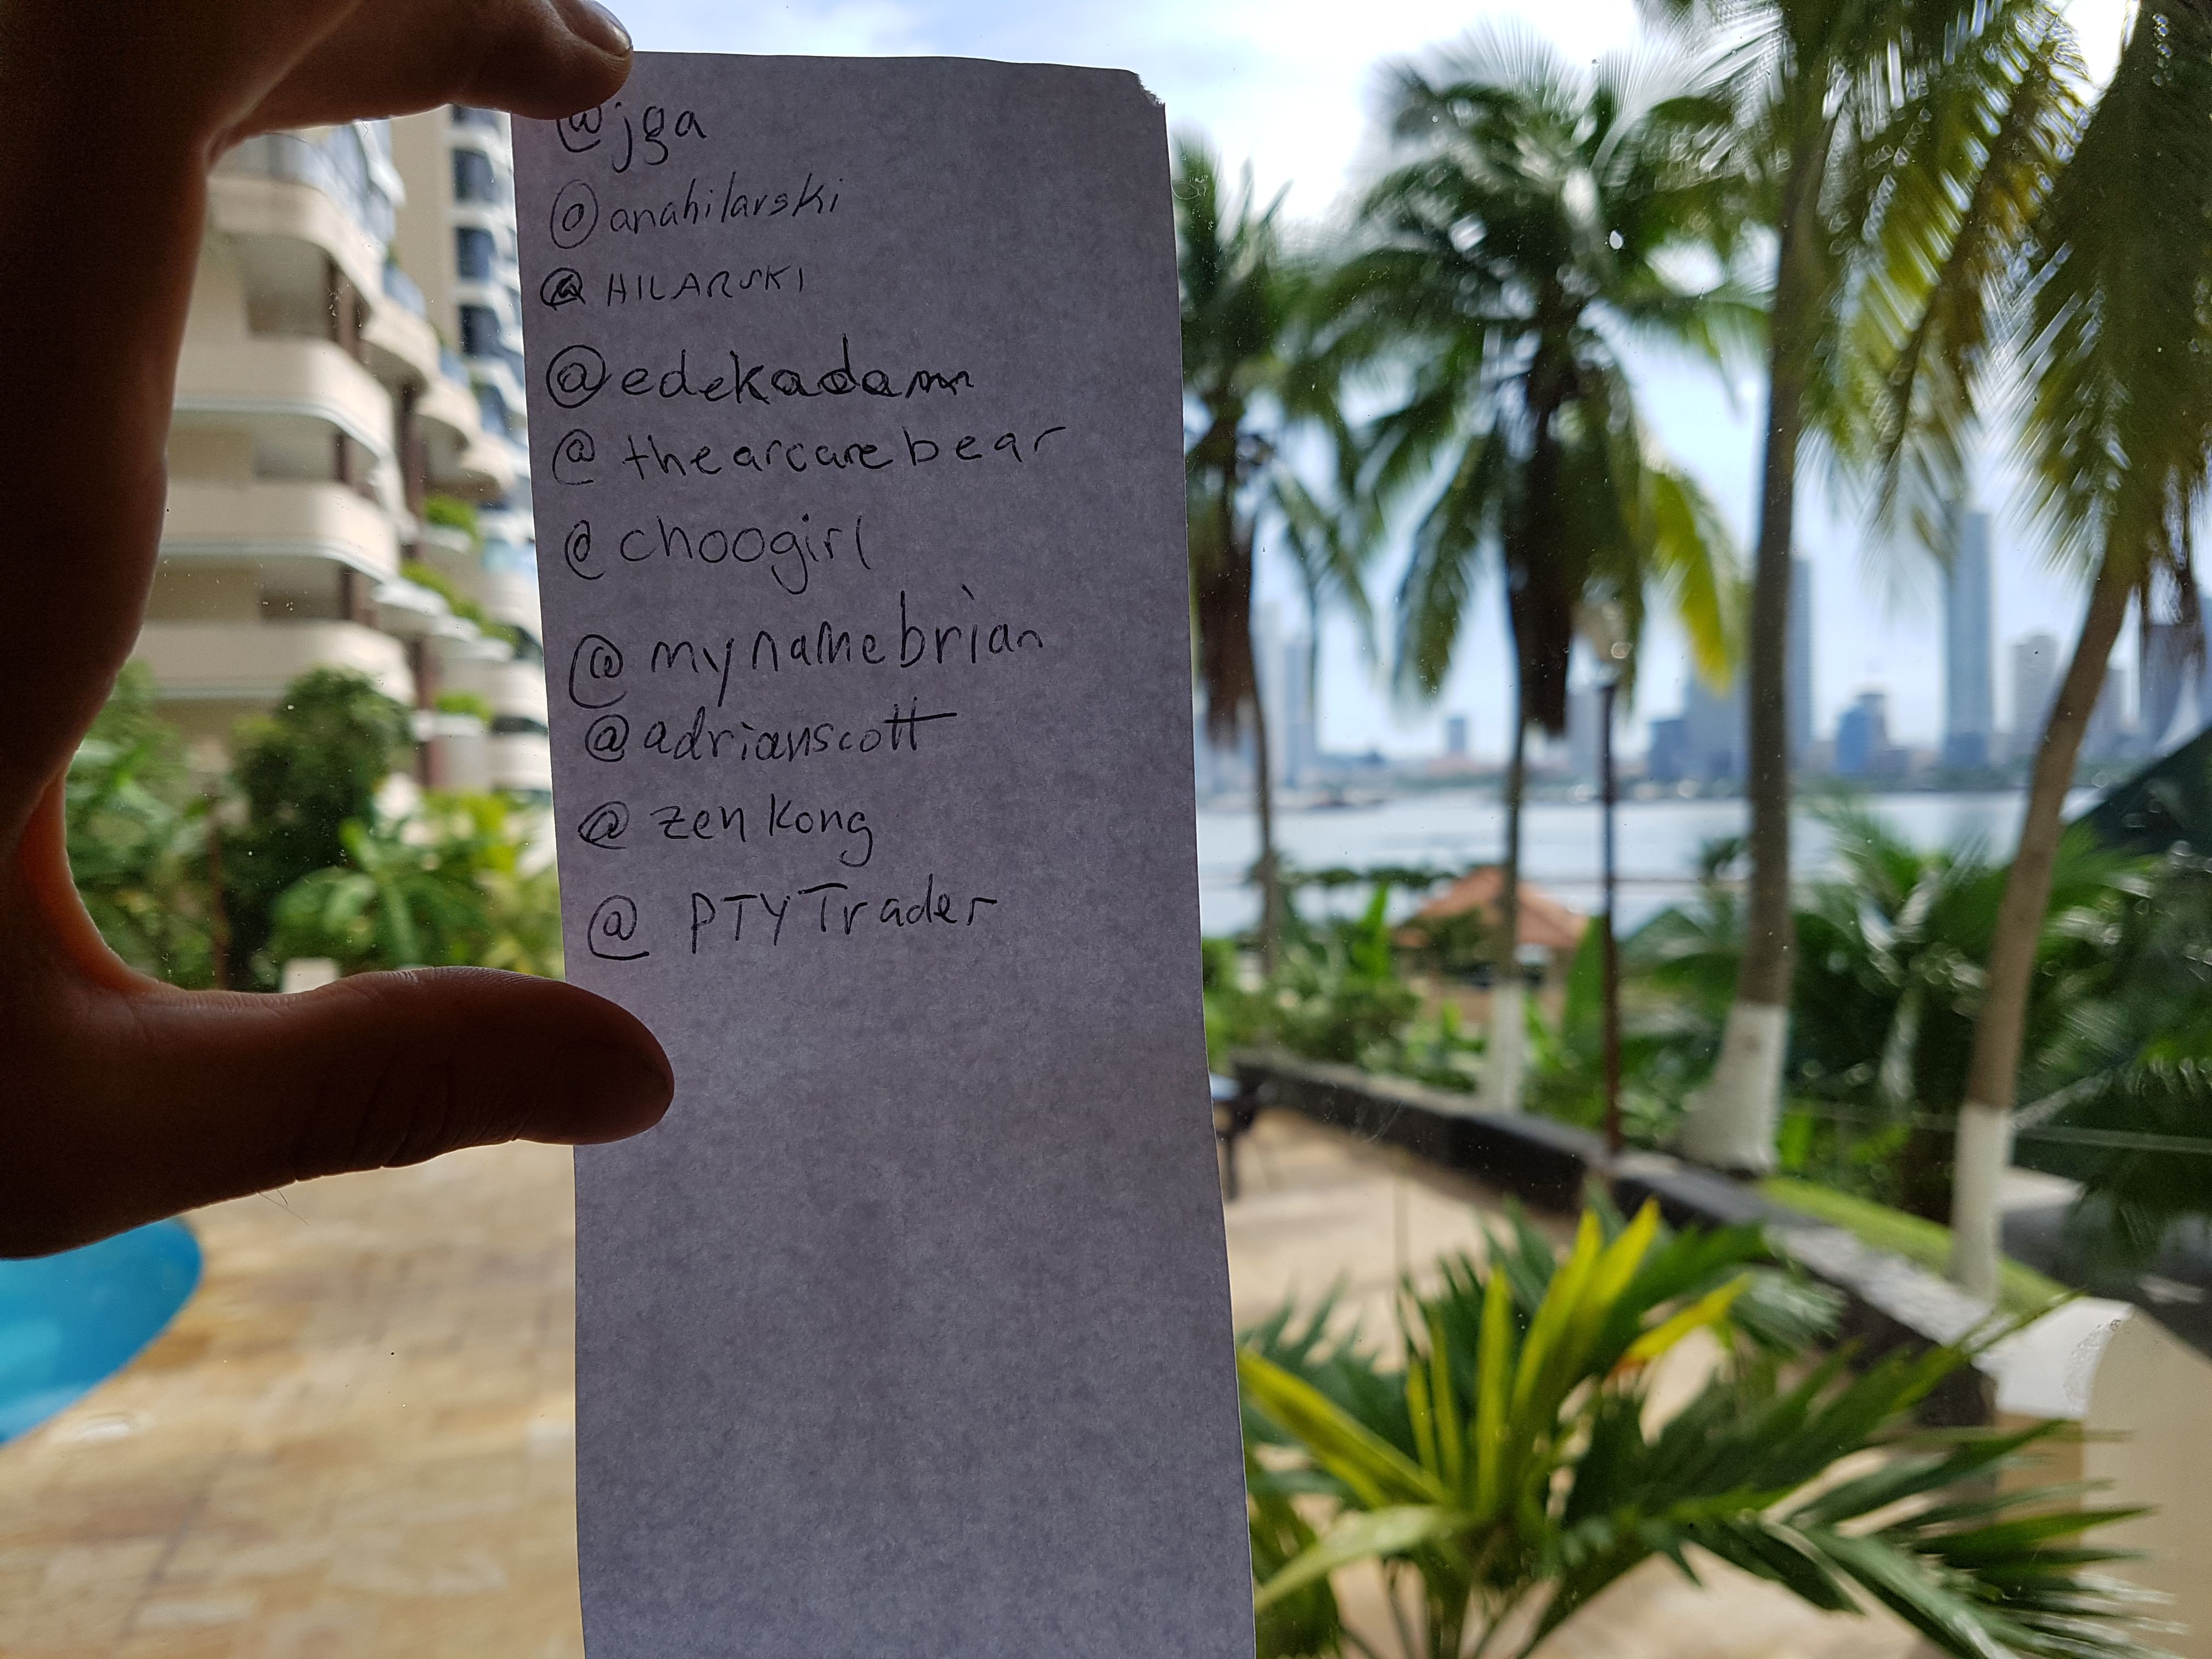 @jga
@anahilarski
@HILARSKI
@edekadamm
@thearcarebear
@choogirl
@mynamebrian
@adrianscott
@zenkong
@PTYTrader